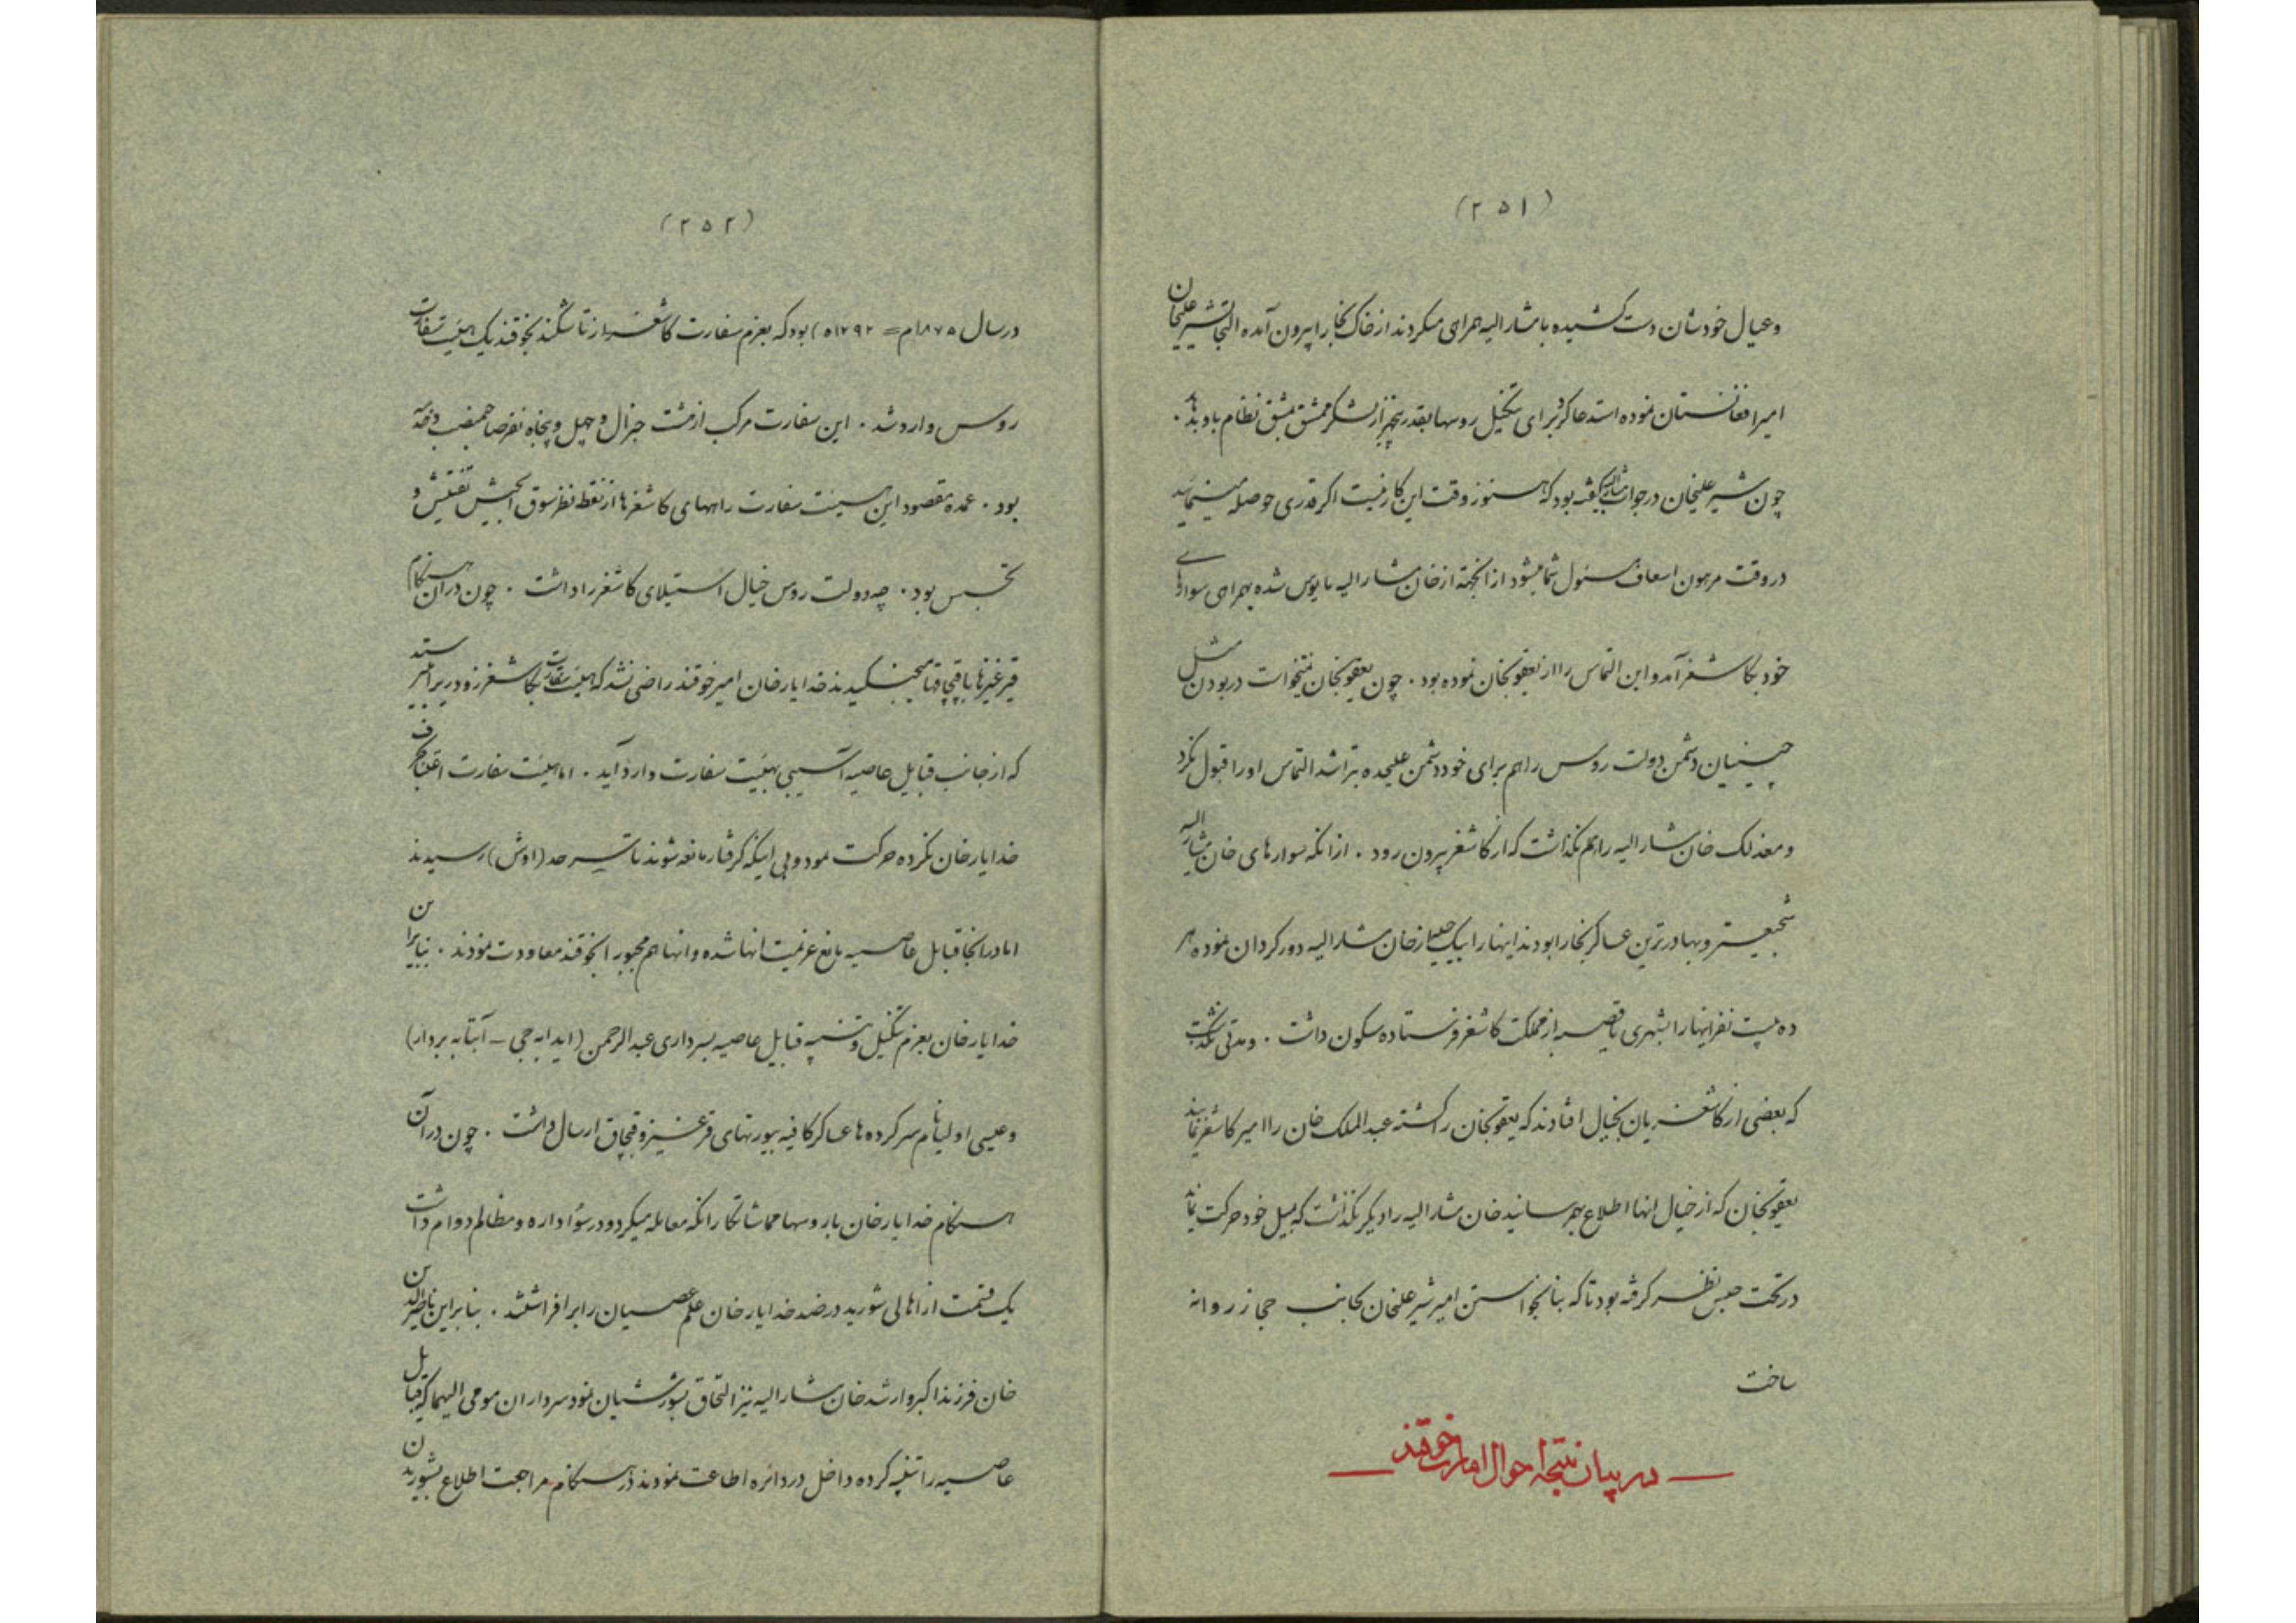 (۲۵۱)
وعیال خودشان دست کشیده بامشارالیه همراهی میکردند از خاک بخارا بیرون آمده التجا بشیرعلیخان
امیر افغانستان نموده استدعا کرد برای تنکیل روسها بقدر یتجزاز لشکر ممشق بمشق نظام باو بدهد .
چون شیرعلیخان در جواب مشارالیه گفته بود که هنوز وقت این کار نیست اگر قدری حوصله مینمائید
در وقت مرهون اسعاف مسئول شما میشود از اینجهة از خان مشارالیه مایوس شده بهمراهی سوارهای
خود بکاشغر آمده این التماس را از یعقوبخان نموده بود . چون یعقوبخان نمیخواست در بودن مثل
چینیان دشمن دولت روس را هم برای خود دشمن علیحده بتراشد التماس او را قبول نکرد
ومعذلک خان مشارالیه را هم نگذاشت که از کاشغر بیرون رود . از انکه سوارهای خان مشارالیه
شجیعتر وبهادرترین عساکر بخارا بودند اینها را بیک حیله از خان مشارالیه دور کردان نموده هر
ده بیست نفر اینها را بشهری یا قصبه از مملکت کاشغر فرستاده سکون داشت . ومدتی نگذشت
که بعضی از کاشغریان بخیال افتادند که یعقوبخان را کشته عبدالملک خان را امیر کاشغر نمایند
یعقوبخان که از خیال انها اطلاع بهمرسانید خان مشارالیه را دیگر نگذاشت که بمیل خود حرکت نماید
در تحت حبس نظر گرفته بود تا که بنا بخواستن امیر شیرعلیخان بجانب حجاز روانه
ساخت
در بیان نتیجه احوال امارت خوقند
(۲۵۲)
در سال ۱۸۷۵م = ۱۲۹۲ه) بود که بعزم سفارت کاشغر از تاشکند بخوقند یک هیئت سفارت
روس وارد شد . این سفارت مرکب از مشت جنرال و چهل و پنجاه نفر صاحبمنصب وغیره
بود . عمده مقصود این هیئت سفارت راههای کاشغر را از نقطه نظر سوق الجیش تفتیش و
تجسس بود . چه دولت روس خیال استیلای کاشغر را داشت . چون در آن هنگام
قیرغیزها با قبچاقها میجنگیدند خدایارخان امیر خوقند راضی نشد که هیئت سفارت بکاشغر زود برود میترسید
که از جانب قبایل عاصیه آسیبی بهیئت سفارت وارد آید . اما هیئت سفارت اعتنا بحرف
خدایارخان نکرده حرکت نمود وبی اینکه گرفتار مانعه شوند تا بسرحد (اوش) رسیدند
اما در انجا قبایل عاصیه مانع عزیمت انها شده و انها هم مجبورا بخوقند معاودت نمودند . بنابران
خدایارخان بعزم تنکیل و تنبیه قبایل عاصیه بسرداری عبدالرحمن (ایدابه جی – آبتابه بردار)
وعیسی اولیا نام سر کرده ها عساکر کافیه بیورتهای قرغیز وقبچاق ارسال داشت . چون در آن
هنگام خدایارخان با روسها مماشاتکارانه معامله میکرد و در سوء اداره و مظالم دوام داشت
یک قسمت از اهالی شورید در ضد خدایارخان علم عصیان را برافراشتند . بنابراین ناصرالدین
خان فرزند اکبر و ارشد خان مشارالیه نیز التحاق بشورشیان نمود سرداران مومی الیهما که قبایل
عاصیه را تنبیه کرده داخل در دائره اطاعت نمودند در هنگام مراجعت اطلاع بشوریدن